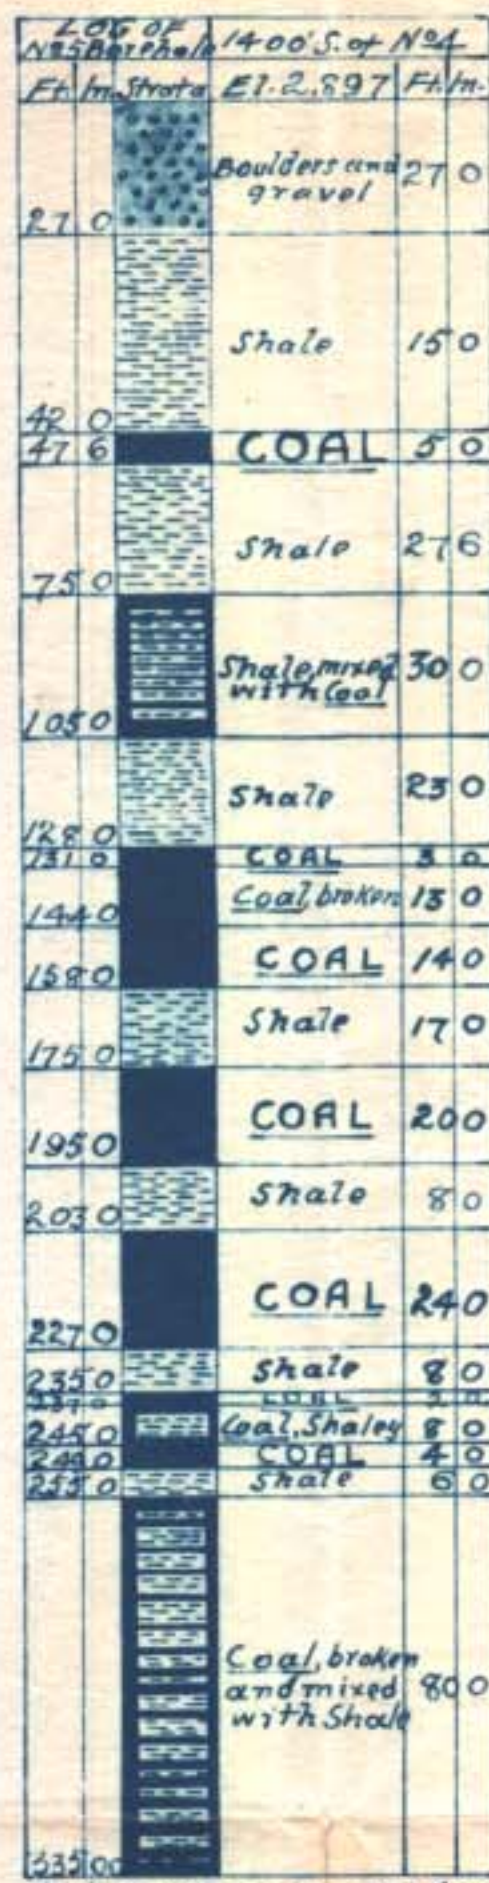 LOG OF
No 5 Borehole 1400' S. of No 4
Ft. In. Strata El. 2,897 Ft. In.
Boulders and
gravel 27 0
27 0
Shale 15 0
42 0
47 6 COAL 5 0
Shale 27 6
75 0
Shale, mixed
with Coal 30 0
105 0
Shale 23 0
128 0
131 0 COAL 3 0
Coal, broken 13 0
144 0
COAL 14 0
158 0
Shale 17 0
175 0
COAL 20 0
195 0
Shale 8 0
203 0
COAL 24 0
227 0
Shale 8 0
235 0
237 0 COAL 2 0
245 0 Coal, Shaley 8 0
249 0 COAL 4 0
255 0 Shale 6 0
Coal, broken
and mixed
with Shale 80 0
335 00